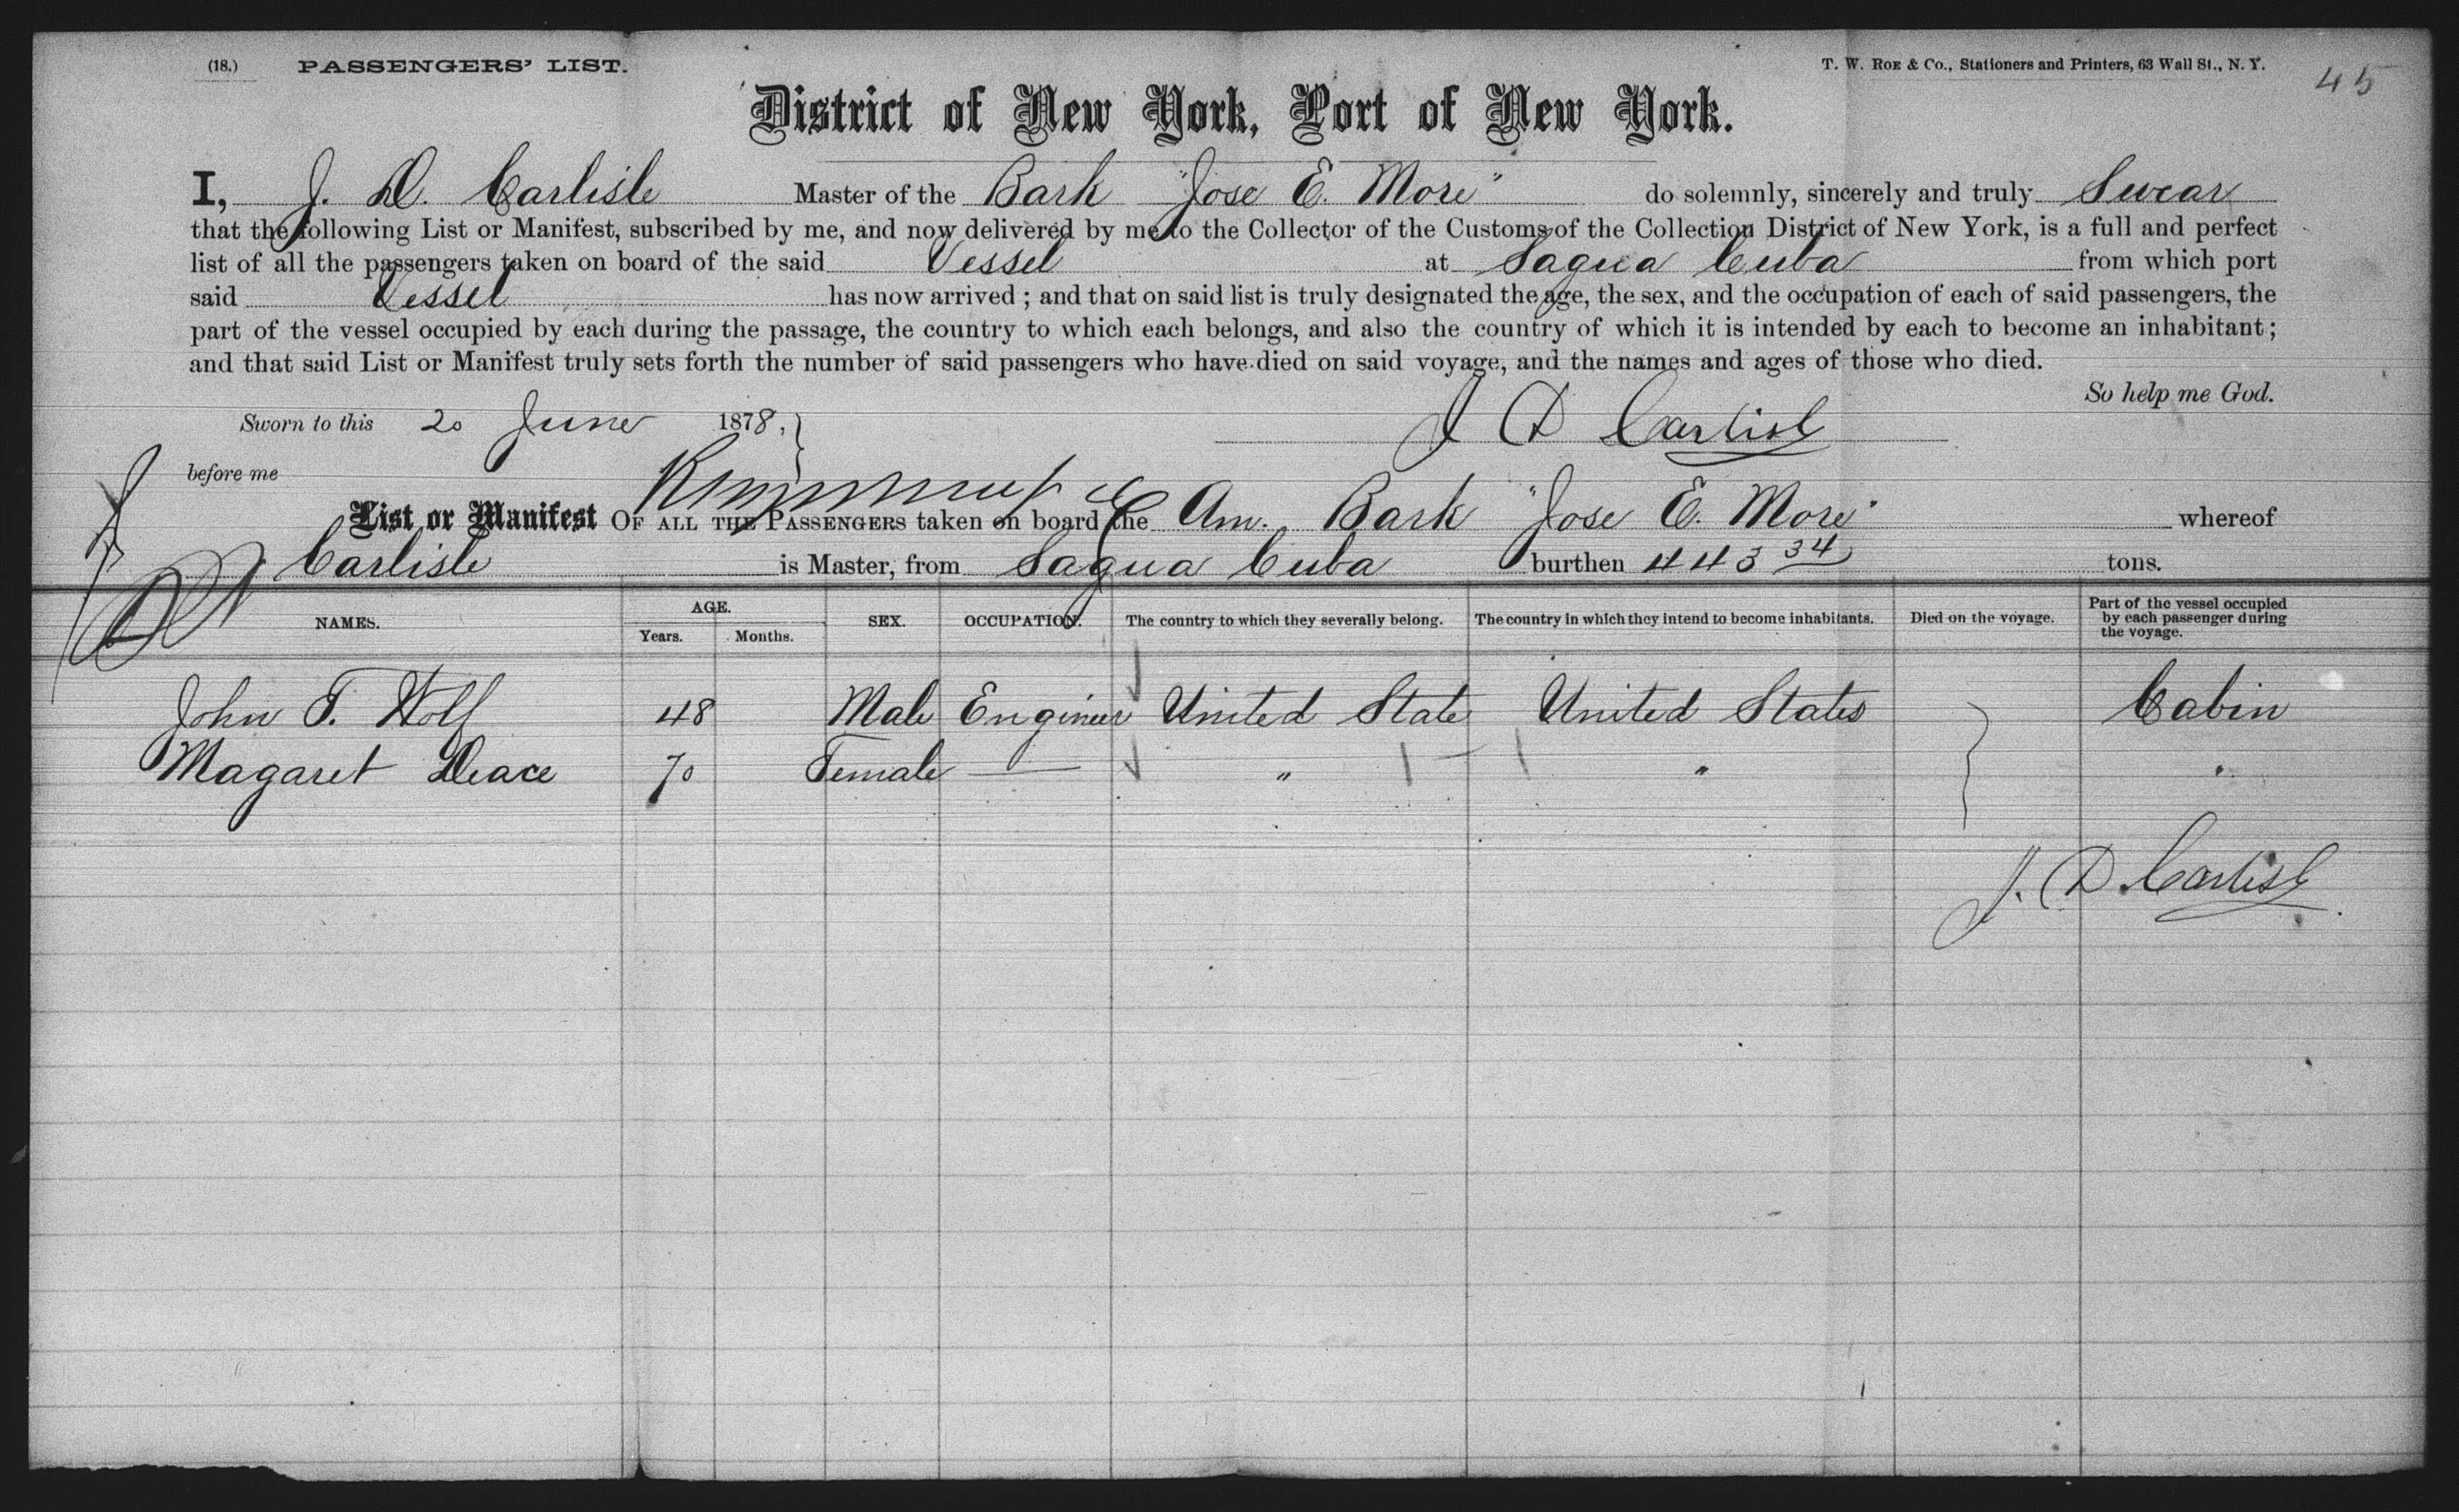 (18.) PASSENGERS' LIST.
T. W. ROE & Co., Stationers and Printers, 63 Wall St., N. Y.
45
District of New York, Port of New York.
I, J. D. Carlisle Master of the Bark "Jose E. More" do solemnly, sincerely and truly Swear
that the following List or Manifest, subscribed by me, and now delivered by me to the Collector of the Customs of the Collection District of New York, is a full and perfect
list of all the passengers taken on board of the said Vessel at Sagua Cuba from which port
said Vessel has now arrived ; and that on said list is truly designated the age, the sex, and the occupation of each of said passengers, the
part of the vessel occupied by each during the passage, the country to which each belongs, and also the country of which it is intended by each to become an inhabitant ;
and that said List or Manifest truly sets forth the number of said passengers who have died on said voyage, and the names and ages of those who died.
So help me God.
Sworn to this 20 June 1878, J D Carlisle
before me
List or Manifest OF ALL THE PASSENGERS taken on board the Am. Bark "Jose E. More" whereof
Carlisle is Master, from Sagua Cuba burthen 443 34 tons.
NAMES. AGE. Years. Months. SEX. OCCUPATION. The country to which they severally belong. The country in which they intend to become inhabitants. Died on the voyage. Part of the vessel occupied by each passenger during the voyage.
John F. Wolf 48 Male Engineer United State United States Cabin
Magaret Deace 70 Female — " " "
J. D. Carlisle